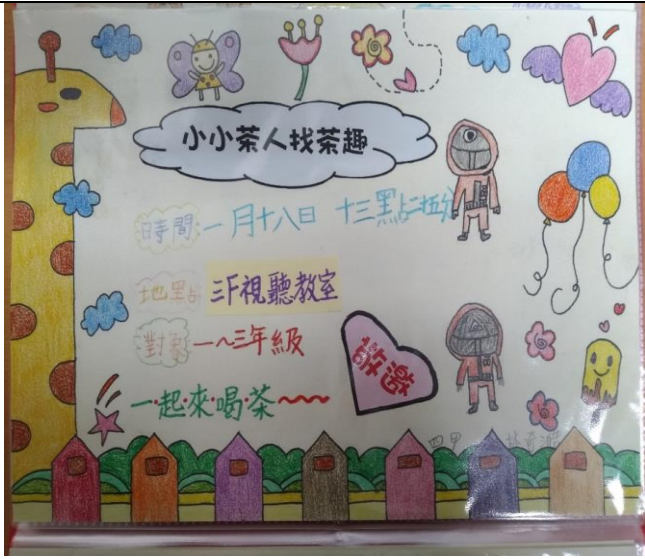 小小茶人找茶趣
時間:一月十八日 十三點二十五分
地點 三F視聽教室
對象 一~三年級
敬邀
一起來喝茶~~~
四甲